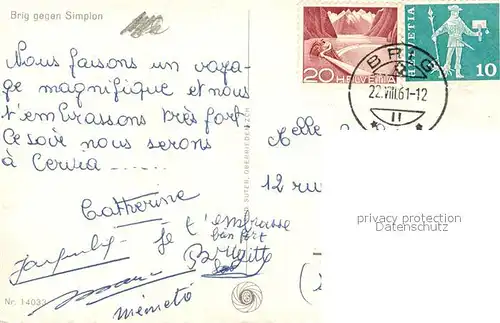 Brig gegen Simplon
Nous faisons un voya-
ge magnifique et nous
t'embrassons très fort
Ce soir nous serons
à
Catherine
Je t'embrasse
bien fort
Brigitte
mémeto
Nr. 14033
20 HELVETIA
HELVETIA 10
BRIG
22.VIII.61-12
11
Melle
12 rue
privacy protection
Datenschutz